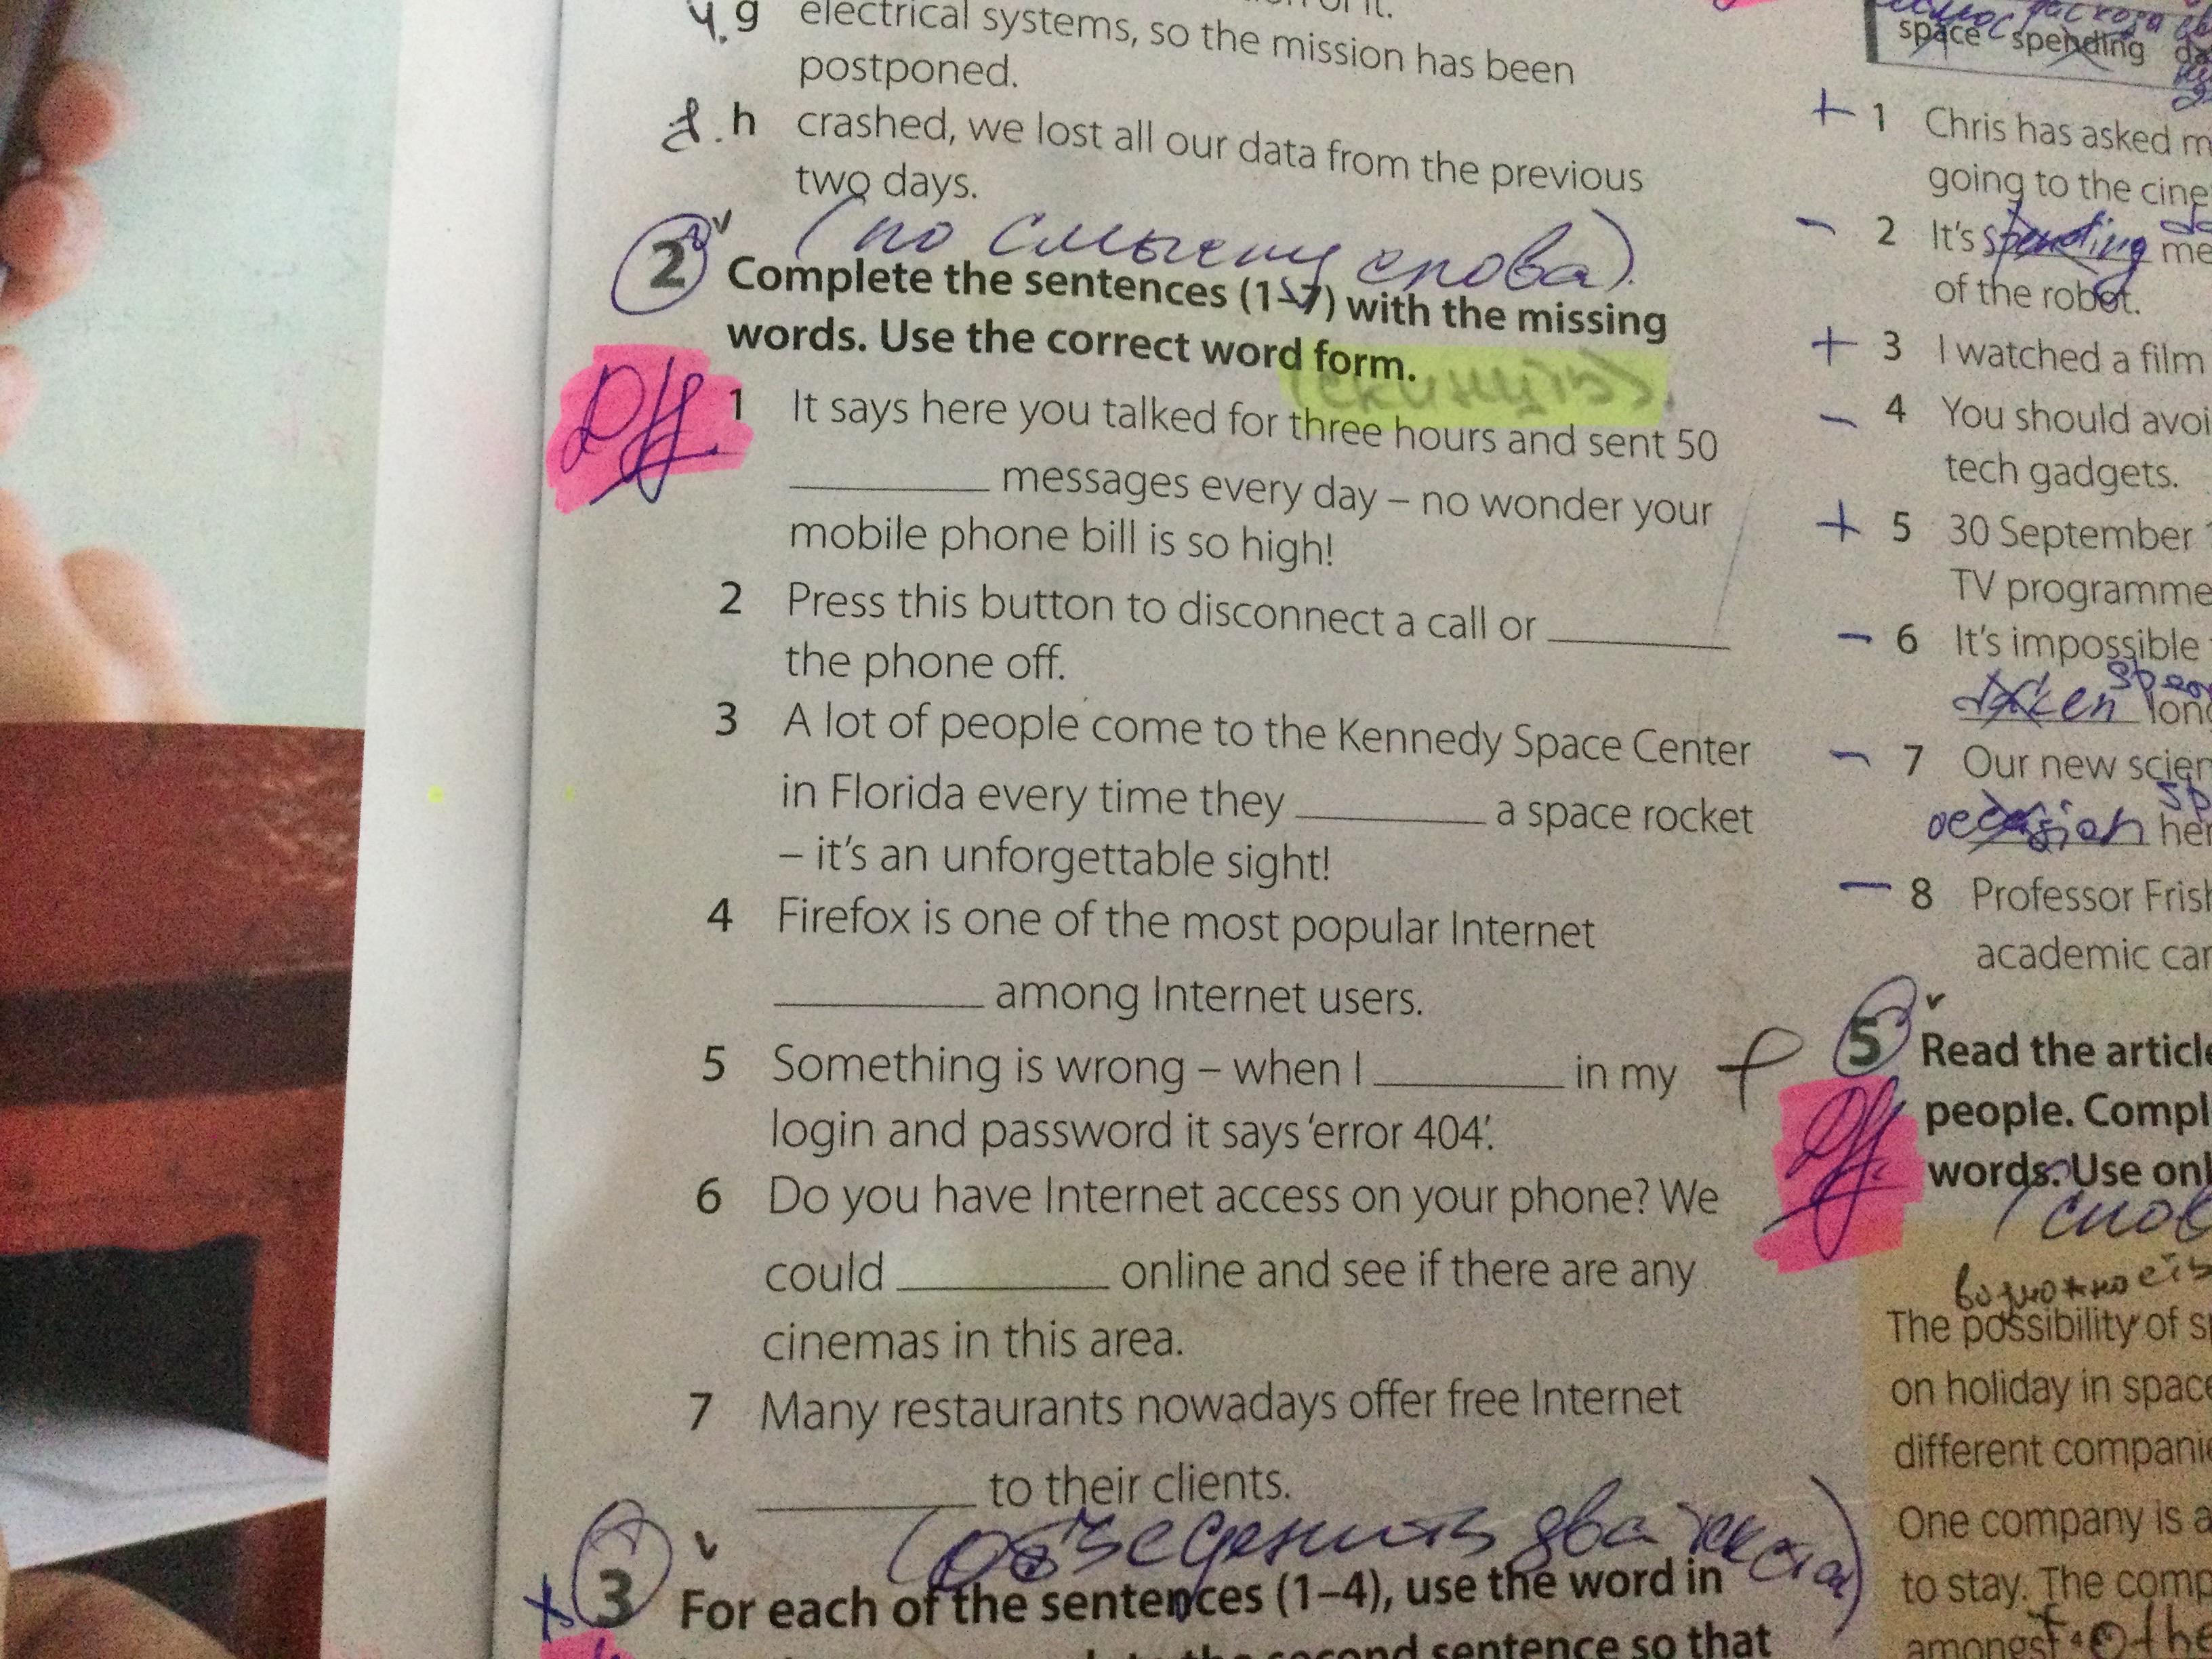 4. g electrical systems, so the mission has been
postponed.
h crashed, we lost all our data from the previous
two days.
(по смыслу слова).
2 Complete the sentences (1–7) with the missing
words. Use the correct word form.
1 It says here you talked for three hours and sent 50
________ messages every day – no wonder your
mobile phone bill is so high!
2 Press this button to disconnect a call or ________
the phone off.
3 A lot of people come to the Kennedy Space Center
in Florida every time they ________ a space rocket
– it's an unforgettable sight!
4 Firefox is one of the most popular Internet
________ among Internet users.
5 Something is wrong – when I ________ in my
login and password it says 'error 404'.
6 Do you have Internet access on your phone? We
could ________ online and see if there are any
cinemas in this area.
7 Many restaurants nowadays offer free Internet
________ to their clients.
(объеденить два текста)
3 For each of the sentences (1–4), use the word in
second sentence so that
space spending
+ 1 Chris has asked
going to the
– 2 It's spending
of the robot.
+ 3 I watched a film
– 4 You should
tech gadgets.
+ 5 30 September
TV programme
– 6 It's impossible
taken
– 7 Our new
occasion
– 8 Professor
academic
5 Read the
people.
words. Use
The possibility of
on holiday in
different
One company is
to stay. The
amongst